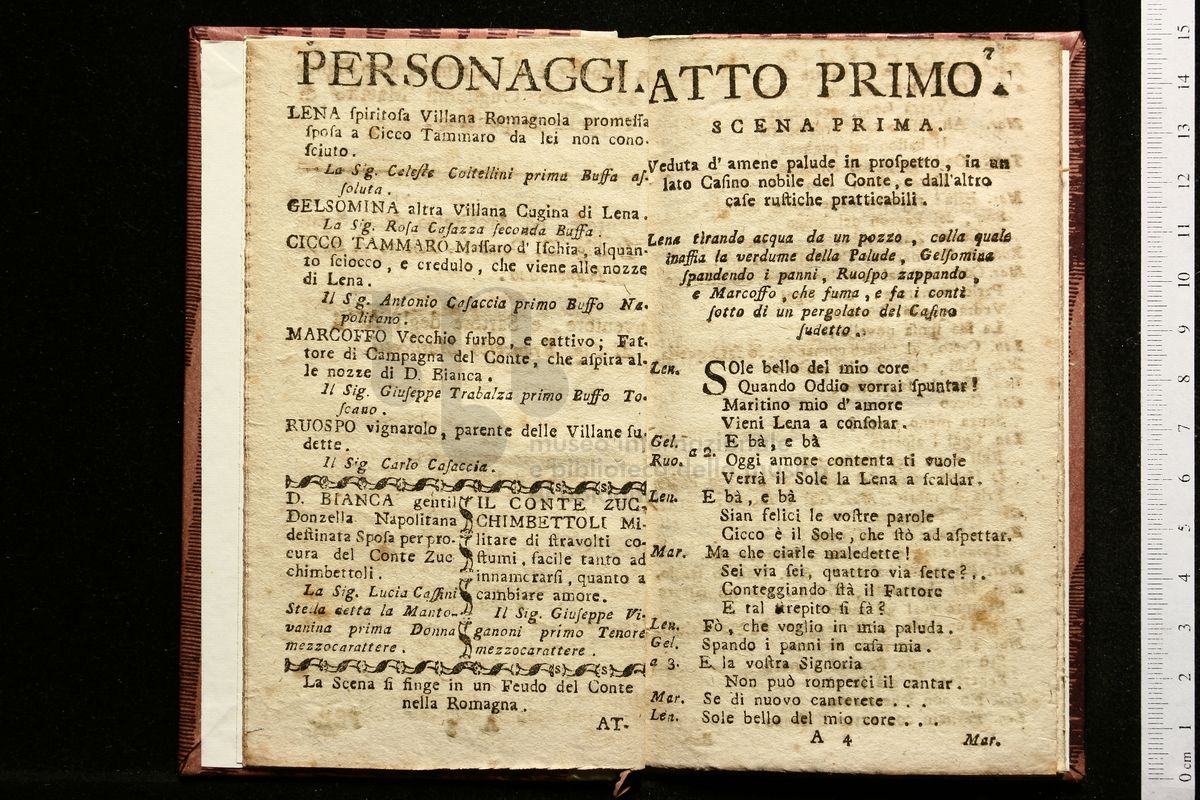 PERSONAGGI.
LENA ſpiritoſa Villana Romagnola promeſſa
ſpoſa a Cicco Tammaro da lei non cono-
ſciuto.
La Sig. Celeſte Coltellini prima Buffa aſ-
ſoluta.
GELSOMINA altra Villana Cugina di Lena.
La Sig. Roſa Caſazza ſeconda Buffa.
CICCO TAMMARO Maſſaro d' Iſchia, alquan-
to ſciocco, e credulo, che viene alle nozze
di Lena.
Il Sig. Antonio Caſaccia primo Buffo Na-
politano.
MARCOFFO Vecchio furbo, e cattivo; Fat-
tore di Campagna del Conte, che aſpira al-
le nozze di D. Bianca.
Il Sig. Giuſeppe Trabalza primo Buffo To-
ſcano.
RUOSPO vignarolo, parente delle Villane ſu-
dette.
Il Sig Carlo Caſaccia.
D. BIANCA gentil
Donzella Napolitana
deſtinata Spoſa per pro-
cura del Conte Zuc
chimbettoli.
La Sig. Lucia Caſſini
Stella detta la Manto-
vanina prima Donna
mezzocarattere.
IL CONTE ZUC-
CHIMBETTOLI Mi-
litare di ſtravolti co-
ſtumi, facile tanto ad
innamorarſi, quanto a
cambiare amore.
Il Sig. Giuſeppe Vi-
ganoni primo Tenore
mezzocarattere.
La Scena ſi finge in un Feudo del Conte
nella Romagna.
AT-
7
ATTO PRIMO.
SCENA PRIMA.
Veduta d' amene palude in proſpetto, in un
lato Caſino nobile del Conte, e dall'altro
caſe ruſtiche pratticabili.
Lena tirando acqua da un pozzo, colla quale
inaffia la verdume della Palude, Gelſomina
ſpandendo i panni, Ruoſpo zappando,
e Marcoffo, che fuma, e fa i conti
ſotto di un pergolato del Caſino
ſudetto.
Len. SOle bello del mio core
Quando Oddio vorrai ſpuntar!
Maritino mio d' amore
Vieni Lena a conſolar.
Gel. E bà, e bà
Ruo. a 2. Oggi amore contenta ti vuole
Verrà il Sole la Lena a ſcaldar.
Len. E bà, e bà
Sian felici le voſtre parole
Cicco è il Sole, che ſtò ad aſpettar.
Mar. Ma che ciarle maledette!
Sei via ſei, quattro via ſette?..
Conteggiando ſtà il Fattore
E tal ſtrepito ſi fà?
Len. Fò, che voglio in mia paluda.
Gel. Spando i panni in caſa mia.
a 3. E la voſtra Signoria
Non può romperci il cantar.
Mar. Se di nuovo canterete . . .
Len. Sole bello del mio core . . .
A 4 Mar.
15
14
13
12
11
10
9
8
7
6
5
4
3
2
1
0 cm